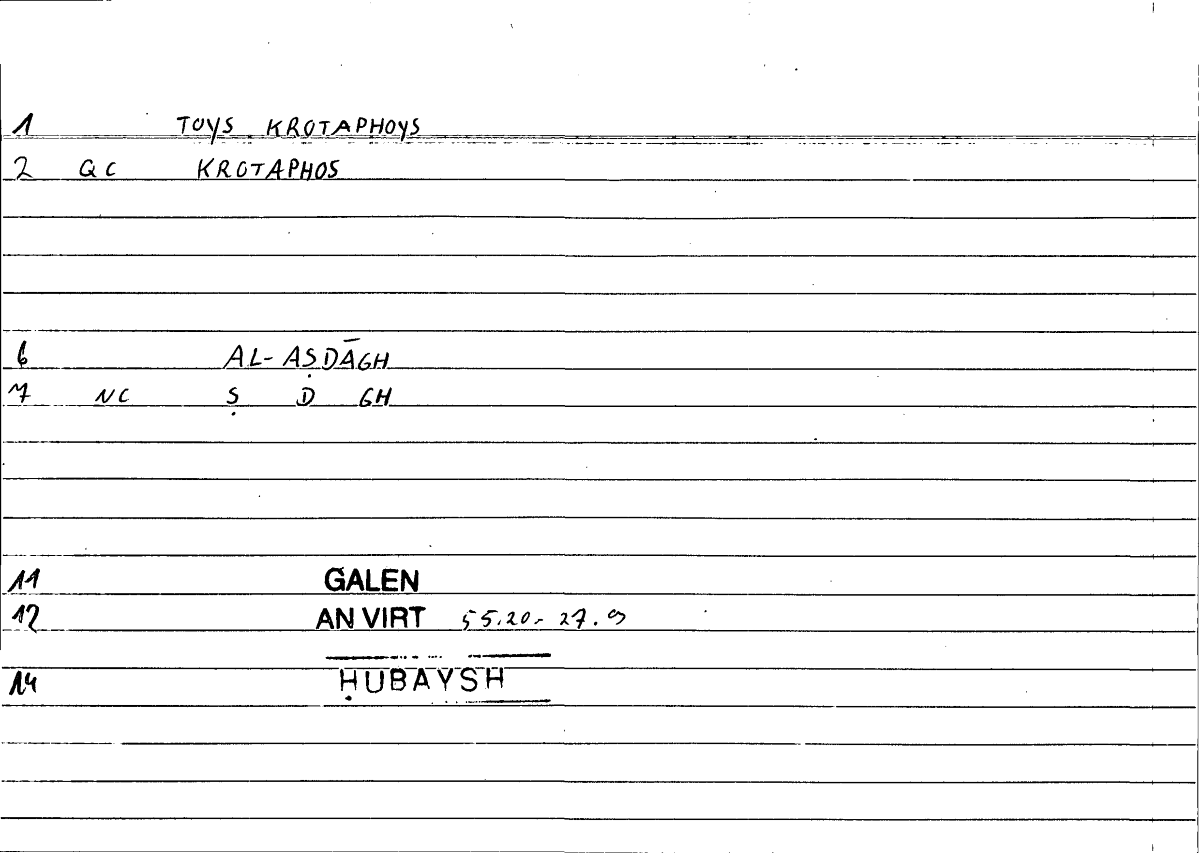 1 TOYS KROTAPHOYS
2 QC KROTAPHOS
6 AL-AṢDĀGH
7 NC Ṣ D GH
11 GALEN
12 AN VIRT 55.20- 27.9
14 ḤUBAYSH